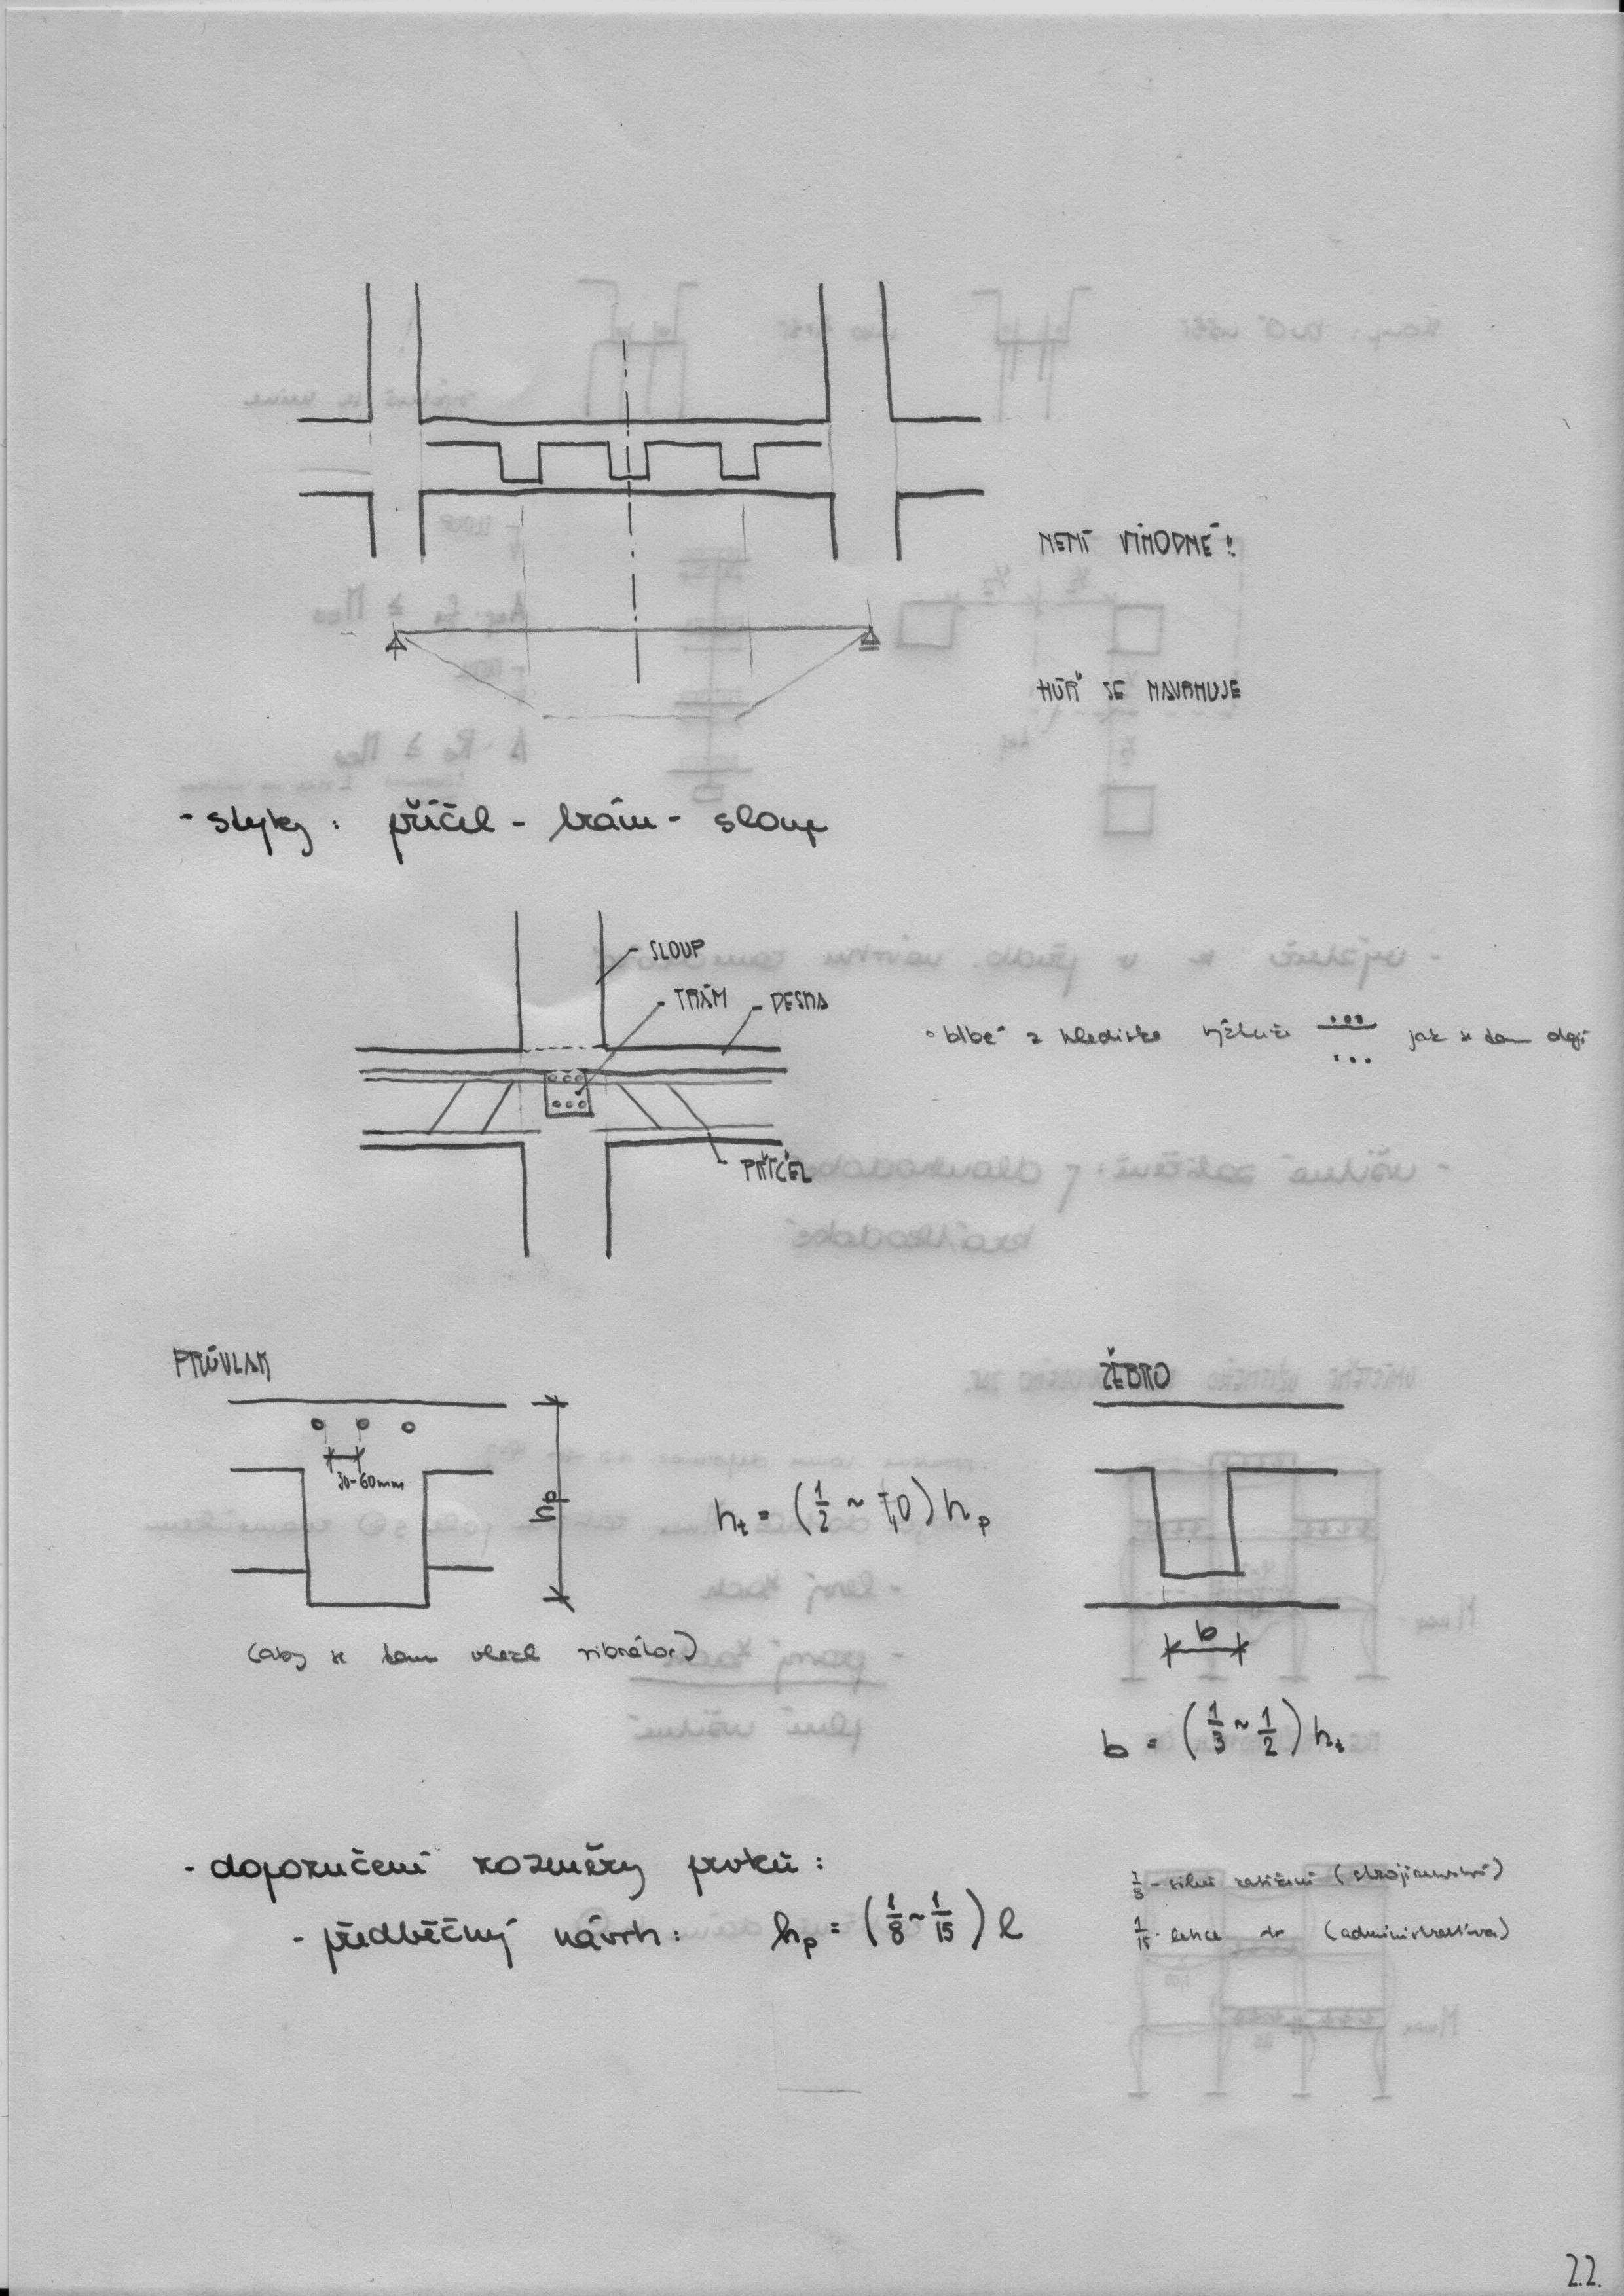 NENÍ VÍHODNÉ!
HŮŘ SE NAVRHUJE
- styky: příčel - trám - sloup
SLOUP
TRÁM
DESKA
PŘÍČEL
blbé z hlediska výztuže jak se tam dají
PRŮVLAK
30-60mm
hp
(aby se tam vlezl vibrátor)
ht = (1/2 ~ 1,0) hp
ŽEBRO
b
b = (1/3 ~ 1/2) ht
- doporučení rozměry prvků:
- předběžný návrh: hp = (1/8 ~ 1/15) l
1/8 - silné zatížení (strojírenství)
1/15 - lehce (administrativa)
22.